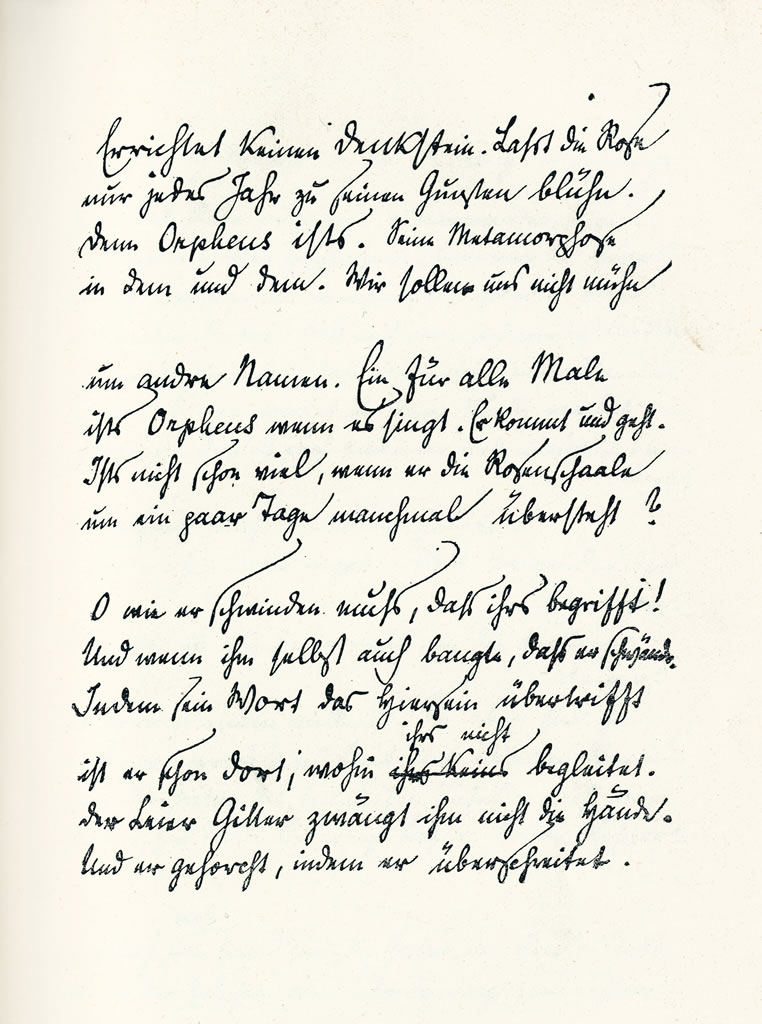 Errichtet keinen Denkstein. Lasst die Rose
nur jedes Jahr zu seinen Gunsten blühn.
Denn Orpheus ists. Seine Metamorphose
in dem und dem. Wir sollen uns nicht mühn
um andre Namen. Ein für alle Male
ists Orpheus wenn es singt. Er kommt und geht.
Ists nicht schon viel, wenn er die Rosenschaale
um ein paar Tage manchmal übersteht?
O wie er schwinden muss, dass ihrs begrifft!
Und wenn ihm selbst auch bangte, dass er schwände.
Indem sein Wort das Hiersein übertrifft
ihrs nicht
ist er schon dort, wohin ihrs keins begleitet.
Der Leier Gitter zwängt ihm nicht die Hände.
Und er gehorcht, indem er überschreitet.